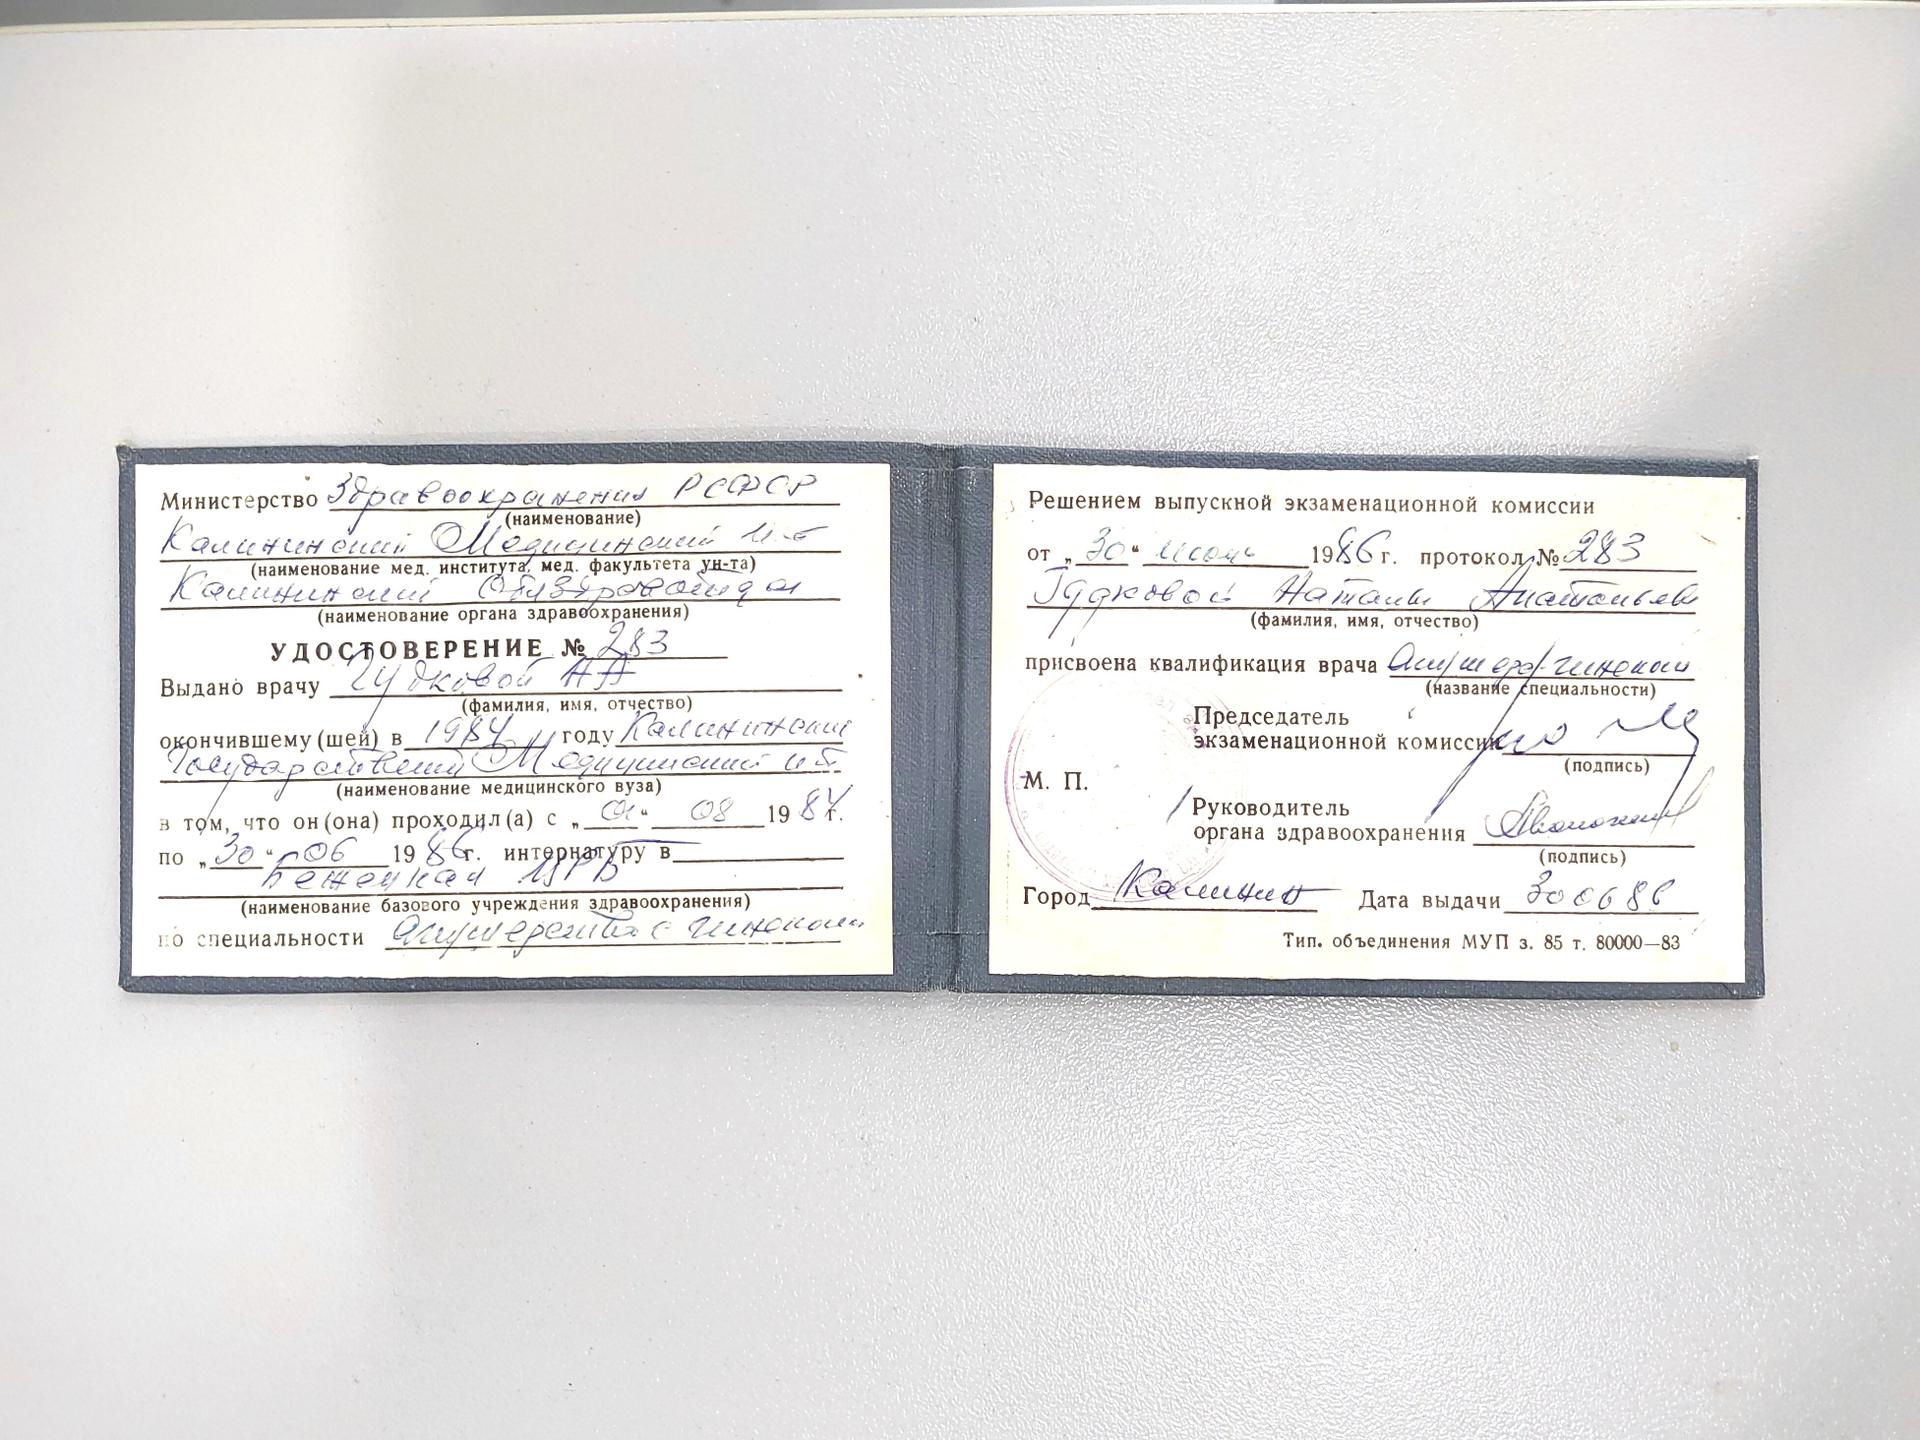 Министерство Здравоохранения РСФСР
(наименование)
Калининский Медицинский и-т
(наименование мед. института, мед. факультета ун-та)
Калининский Облздравотдел
(наименование органа здравоохранения)
УДОСТОВЕРЕНИЕ № 283
Выдано врачу Гудковой НА
(фамилия, имя, отчество)
окончившему (шей) в 1984 году Калининский
Государственный Медицинский ит
(наименование медицинского вуза)
в том, что он (она) проходил (а) с „01“ 08 1984 г.
по „30“ 06 1986 г. интернатуру в
Бежецкая ЦРБ
(наименование базового учреждения здравоохранения)
по специальности Акушерство с гинекол
Решением выпускной экзаменационной комиссии
от „30“ июня 1986 г. протокол № 283
Гудковой Наталье Анатольевне
(фамилия, имя, отчество)
присвоена квалификация врача Акушера-гинеколог
(название специальности)
Председатель
экзаменационной комиссии
(подпись)
М. П.
Руководитель
органа здравоохранения
(подпись)
Город Калинин Дата выдачи 300686
Тип. объединения МУП з. 85 т. 80000—83